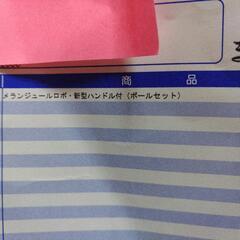 商品
メランジュールロボ・新型ハンドル付（ボールセット）